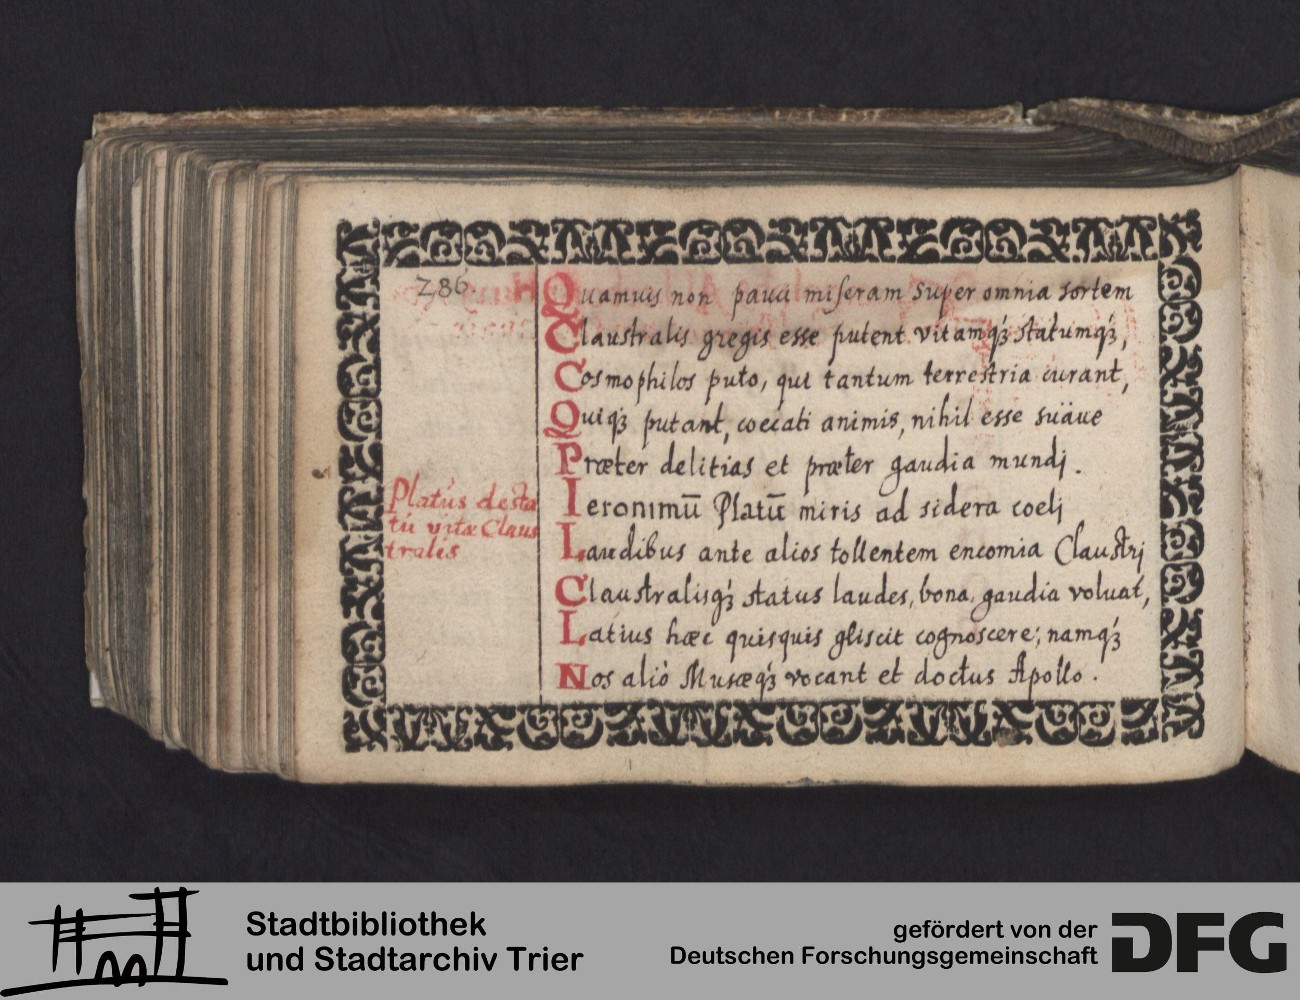 286
Quamuis non pauci miseram super omnia sortem
Claustralis gregis esse putent vitamq́ʒ statumq́ʒ,
Cosmophilos puto, qui tantum terrestria curant,
Quiq́ʒ putant, coecati animis, nihil esse suäue
Præter delitias et præter gaudia mundj.
Ieronimū Platū miris ad sidera coelj
Laudibus ante alios tollentem encomia Claustrj
Claustralisq́ʒ status laudes, bona, gaudia voluat,
Latius hæc quisquis gliscit cognoscere; namq́ʒ
Nos aliò Musæq́ʒ vocant et doctus Apollo.
Platus de sta
tu vitæ Claus
tralis
Stadtbibliothek
und Stadtarchiv Trier
gefördert von der
Deutschen Forschungsgemeinschaft
DFG